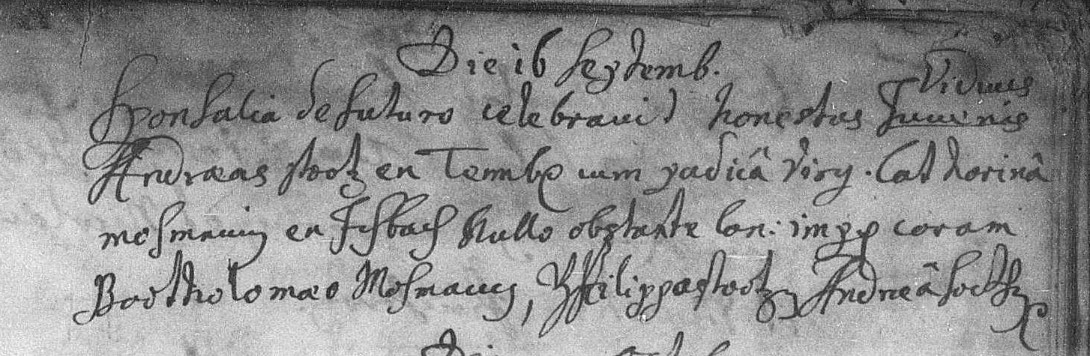 Die 16 Septemb.
Viduus
Sponsalia de futuro celebravit honestus Juvenis
Andreas stotz en Temble cum pudicâ virg. Catharinâ
mosmairin en Fisbach Nullo obstante Can: imp. coram
Bartholomæo Mosmaur, Philippo stotz, Andreâ